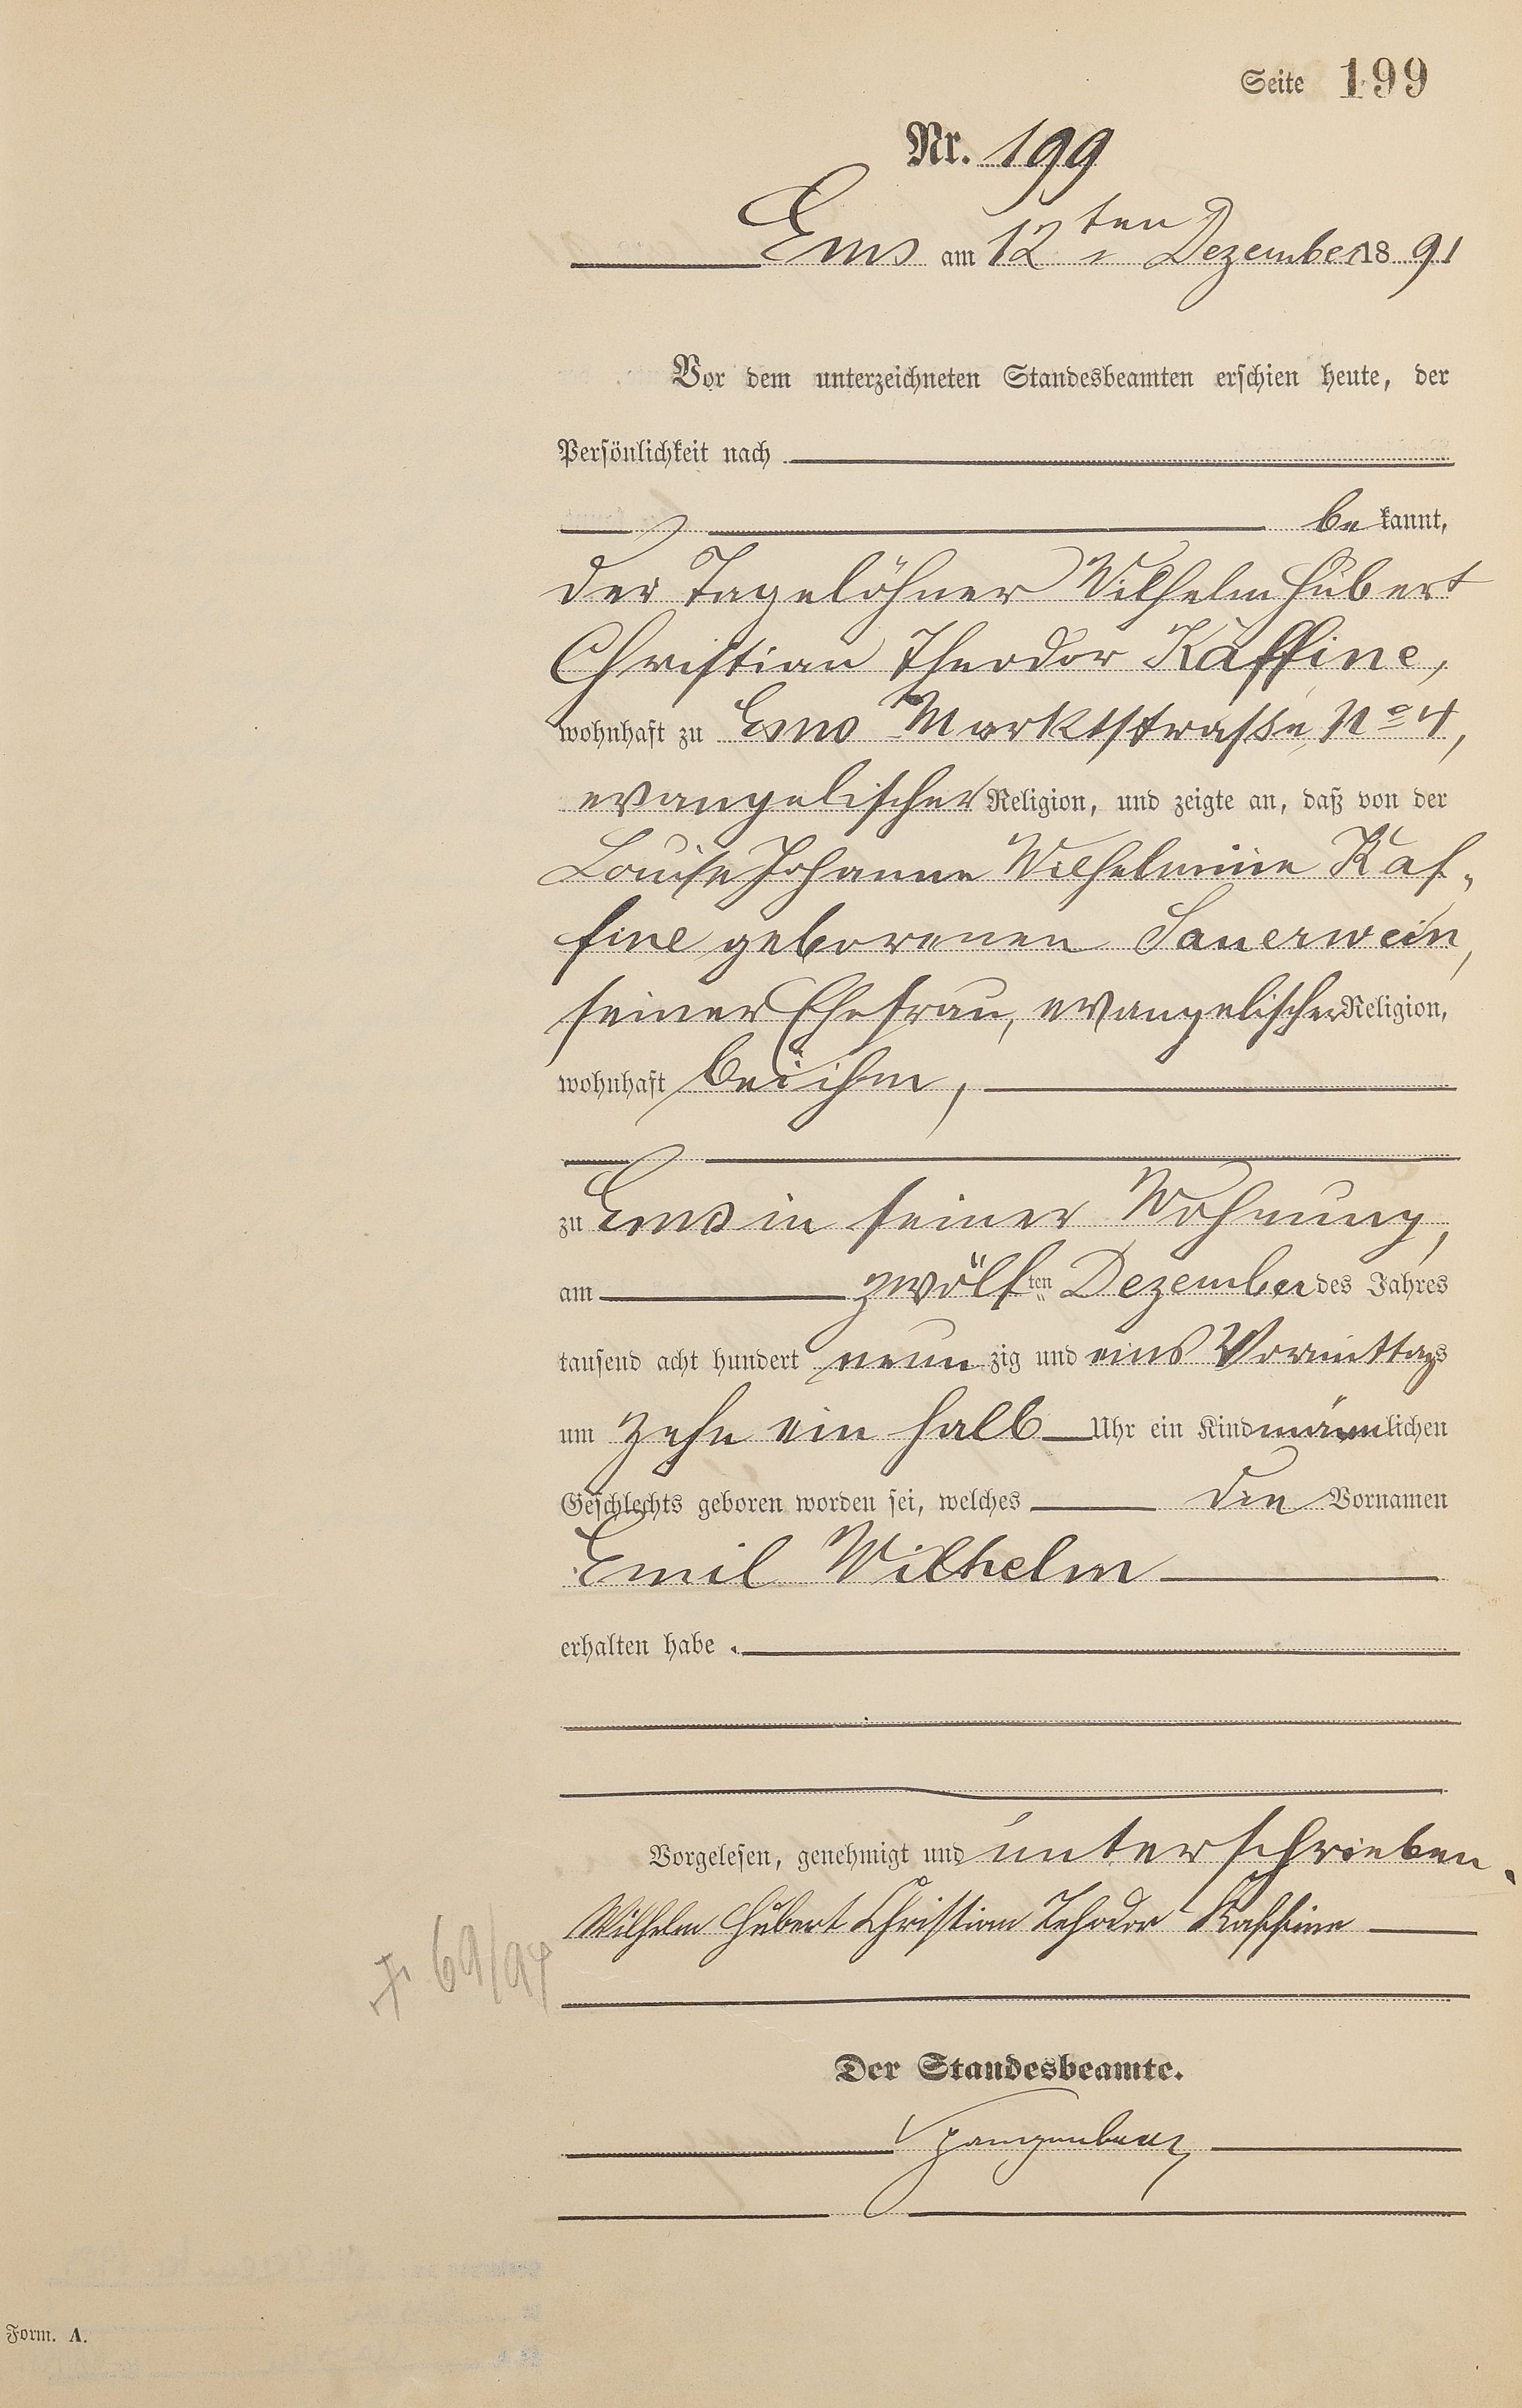 Seite 199
Nr. 199
Ems am 12ten Dezember 1891
Vor dem unterzeichneten Standesbeamten erschien heute, der
Persönlichkeit nach
bekannt,
der Tagelöhner Wilhelm Hubert
Christian Theodor Kaffine,
wohnhaft zu Ems Marktstraße, No 4,
evangelischer Religion, und zeigte an, daß von der
Louise Johanne Wilhelmine Kaf-
fine geborenen Sauerwein,
seiner Ehefrau, evangelischer Religion,
wohnhaft bei ihm,
zu Ems in seiner Wohnung,
am zwölften Dezember des Jahres
tausend acht hundert neunzig und eins Vormittags
um zehn ein halb Uhr ein Kind männlichen
Geschlechts geboren worden sei, welches den Vornamen
Emil Wilhelm
erhalten habe.
Vorgelesen, genehmigt und unterschrieben.
Wilhelm Hubert Christian Tehodor Kaffine
† 69/94
Der Standesbeamte.
Spangenberg
Form. A.